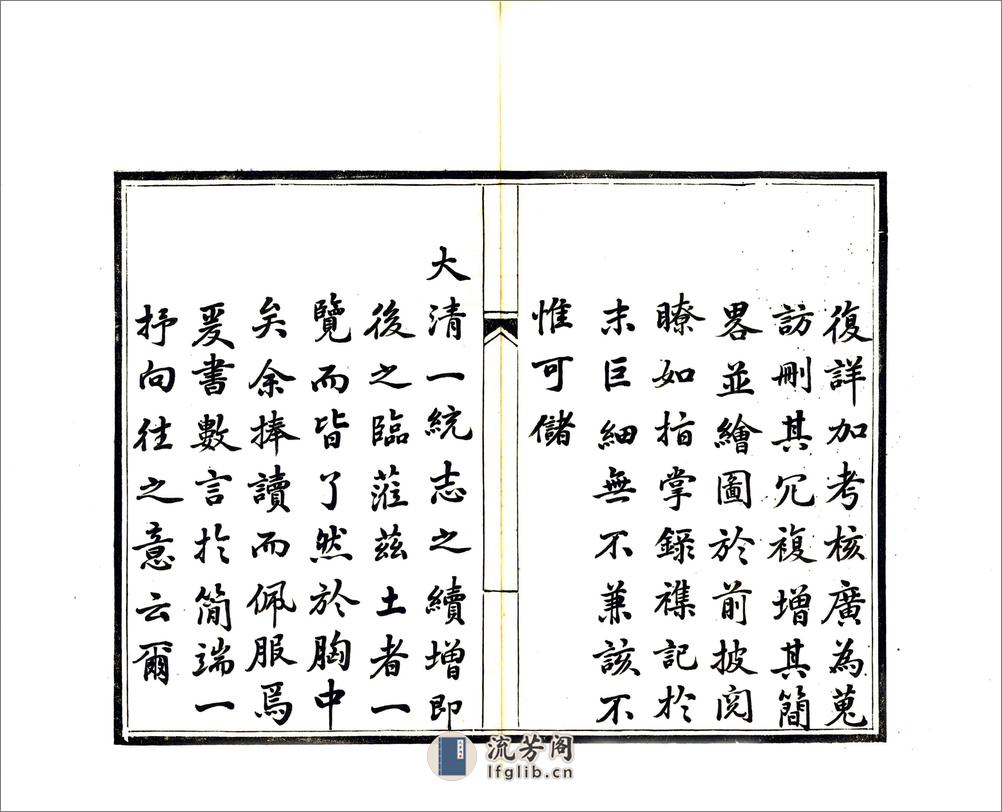 復詳加考核廣為蒐
訪刪其冗複增其簡
畧並繪圖於前披閱
瞭如指掌錄襍記於
末巨細無不兼該不
惟可儲
大清一統志之續增即
後之臨蒞茲土者一
覽而皆了然於胸中
矣余捧讀而佩服焉
爰書數言於簡端一
抒向往之意云爾
流芳阁
lfglib.cn